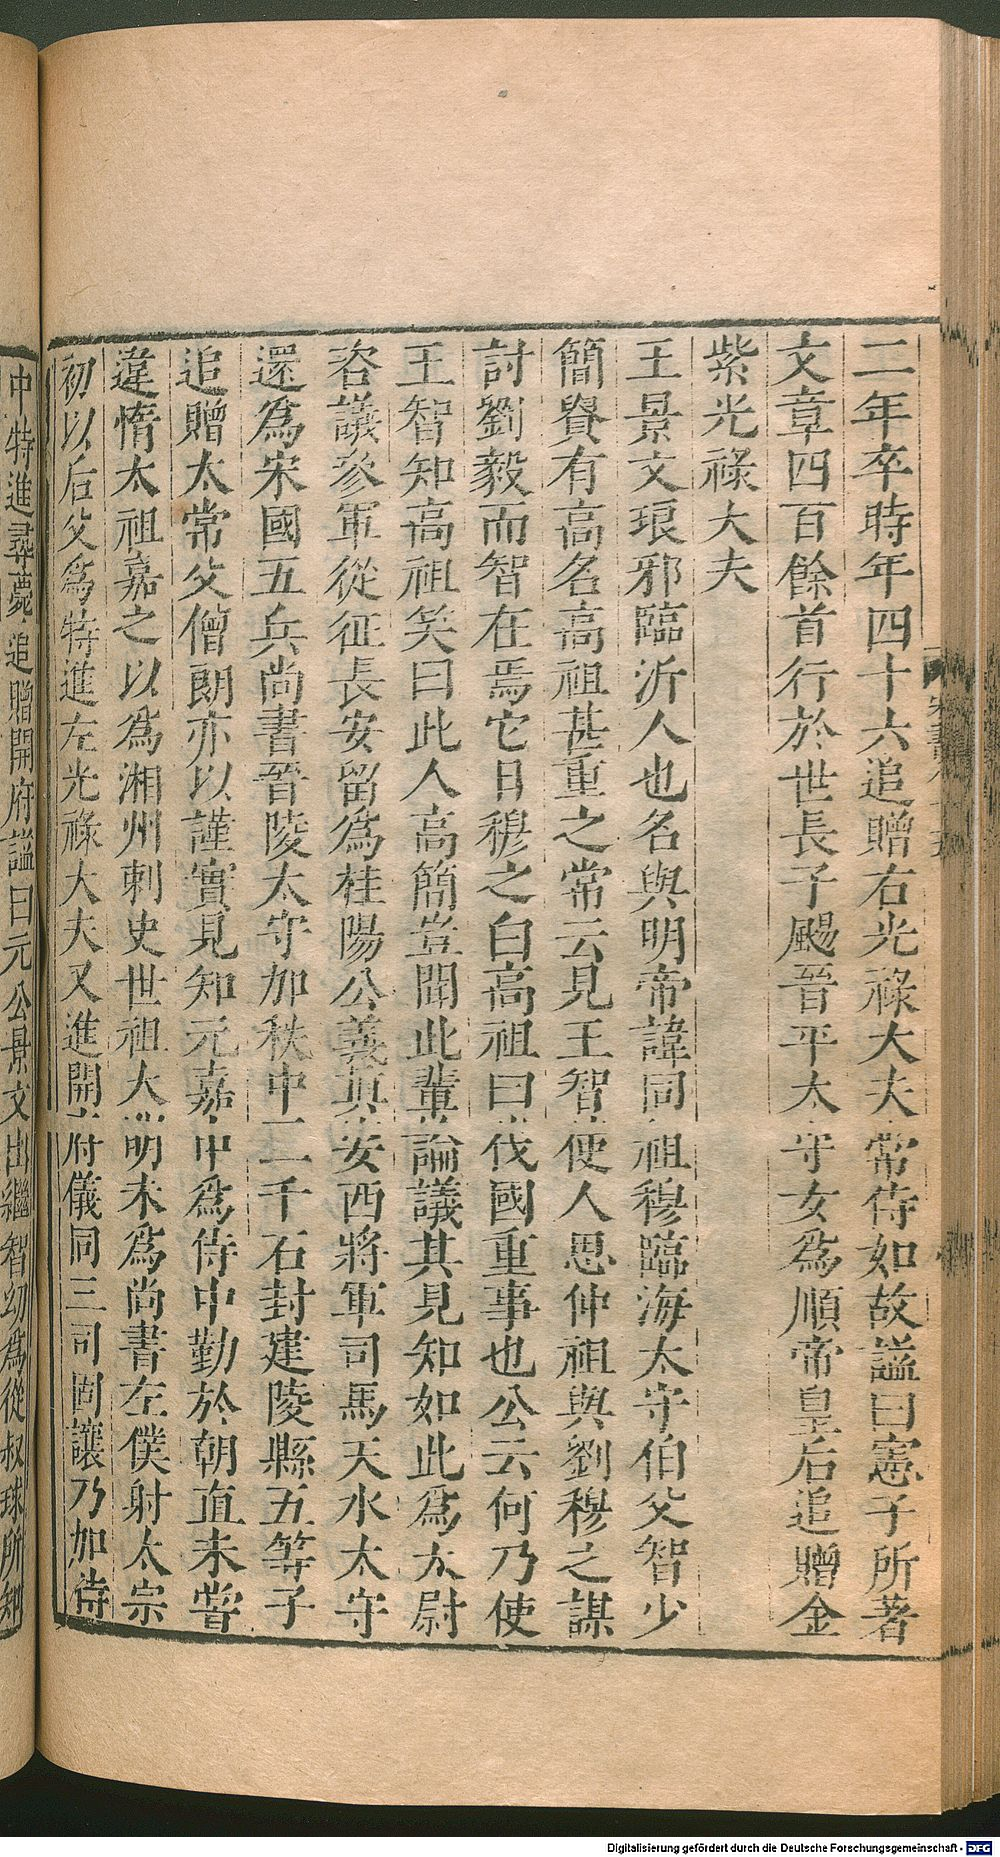 二年卒時年四十六追贈右光祿大夫常侍如故諡曰憲子所著
文章四百餘首行於世長子颺晉平太守女爲順帝皇后追贈金
紫光祿大夫
王景文琅邪臨沂人也名與明帝諱同祖穆臨海太守伯父智少
簡貴有高名高祖甚重之常云見王智使人思仲祖與劉穆之謀
討劉毅而智在焉它日穆之白高祖曰伐國重事也公云何乃使
王智知高祖笑曰此人高簡豈聞此輩論議其見知如此爲太尉
咨議參軍從征長安留爲桂陽公義真安西將軍司馬天水太守
還爲宋國五兵尚書晉陵太守加秩中二千石封建陵縣五等子
追贈太常父僧朗亦以謹實見知元嘉中爲侍中勤於朝直未嘗
違惰太祖嘉之以爲湘州刺史世祖大明末爲尚書左僕射太宗
初以后父爲特進左光祿大夫又進開府儀同三司固讓乃加侍
中特進尋薨追贈開府諡曰元公景文出繼智幼爲從叔球所知
Digitalisierung gefördert durch die Deutsche Forschungsgemeinschaft - DFG